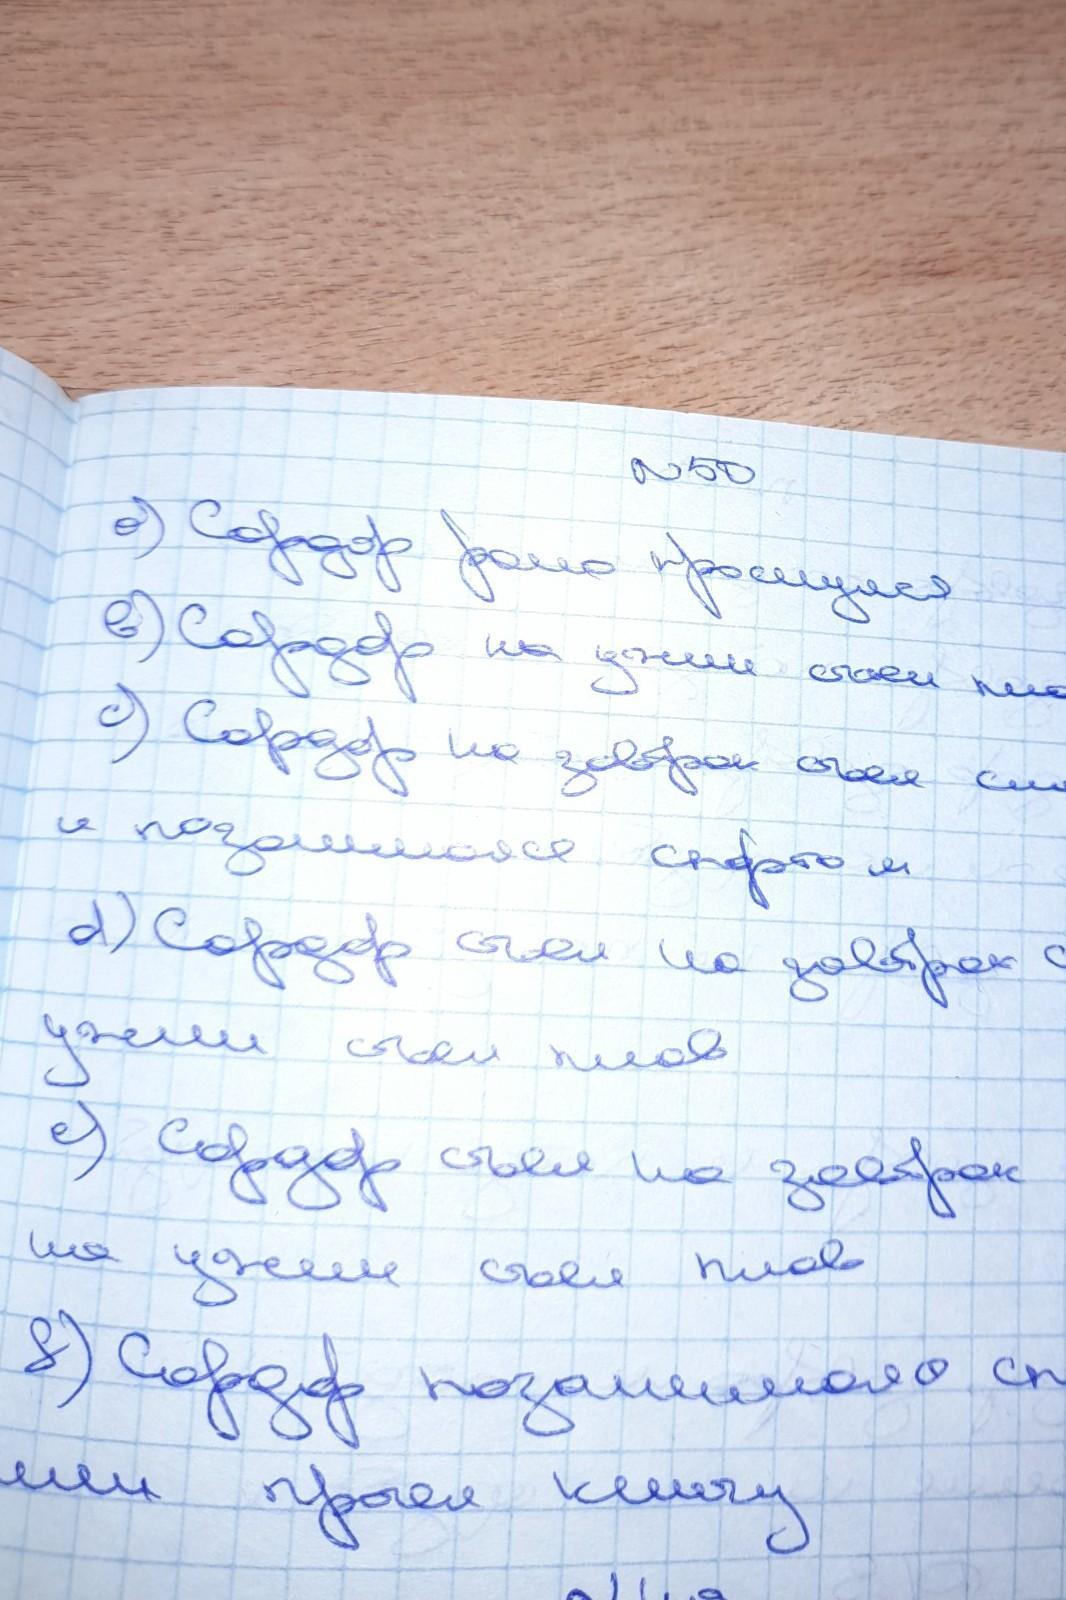 №50
a) Сардор рано проснулся
b) Сардор на ужин съел пло
c) Сардор на завтрак съел
и позанимался спортом
d) Сардор съел на завтрак с
ужин съел плов
e) Сардор съел на завтрак
на ужин съел плов
f) Сардор позанимался сп
книгу